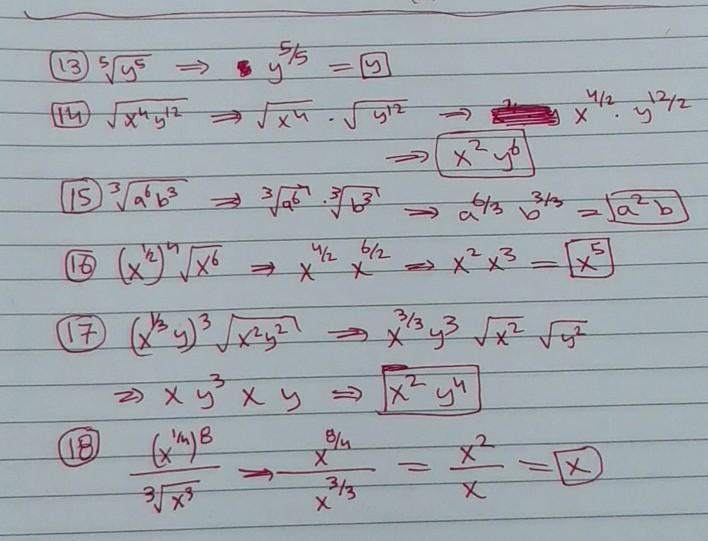 (13) ⁵√y⁵ ⇒ y^5/5 = y
(14) √x⁴y¹² ⇒ √x⁴ · √y¹² ⇒ x^4/2 · y^12/2
⇒ x² y⁶
(15) ³√a⁶b³ ⇒ ³√a⁶ · ³√b³ → a^6/3 b^3/3 = a² b
(16) (x^1/2)⁴ √x⁶ ⇒ x^4/2 x^6/2 ⇒ x² x³ = x⁵
(17) (x^1/3 y)³ √x²y² ⇒ x^3/3 y³ √x² √y²
⇒ x y³ x y ⇒ x² y⁴
(18) (x^1/4)⁸ / ³√x³ → x^8/4 / x^3/3 = x² / x = x